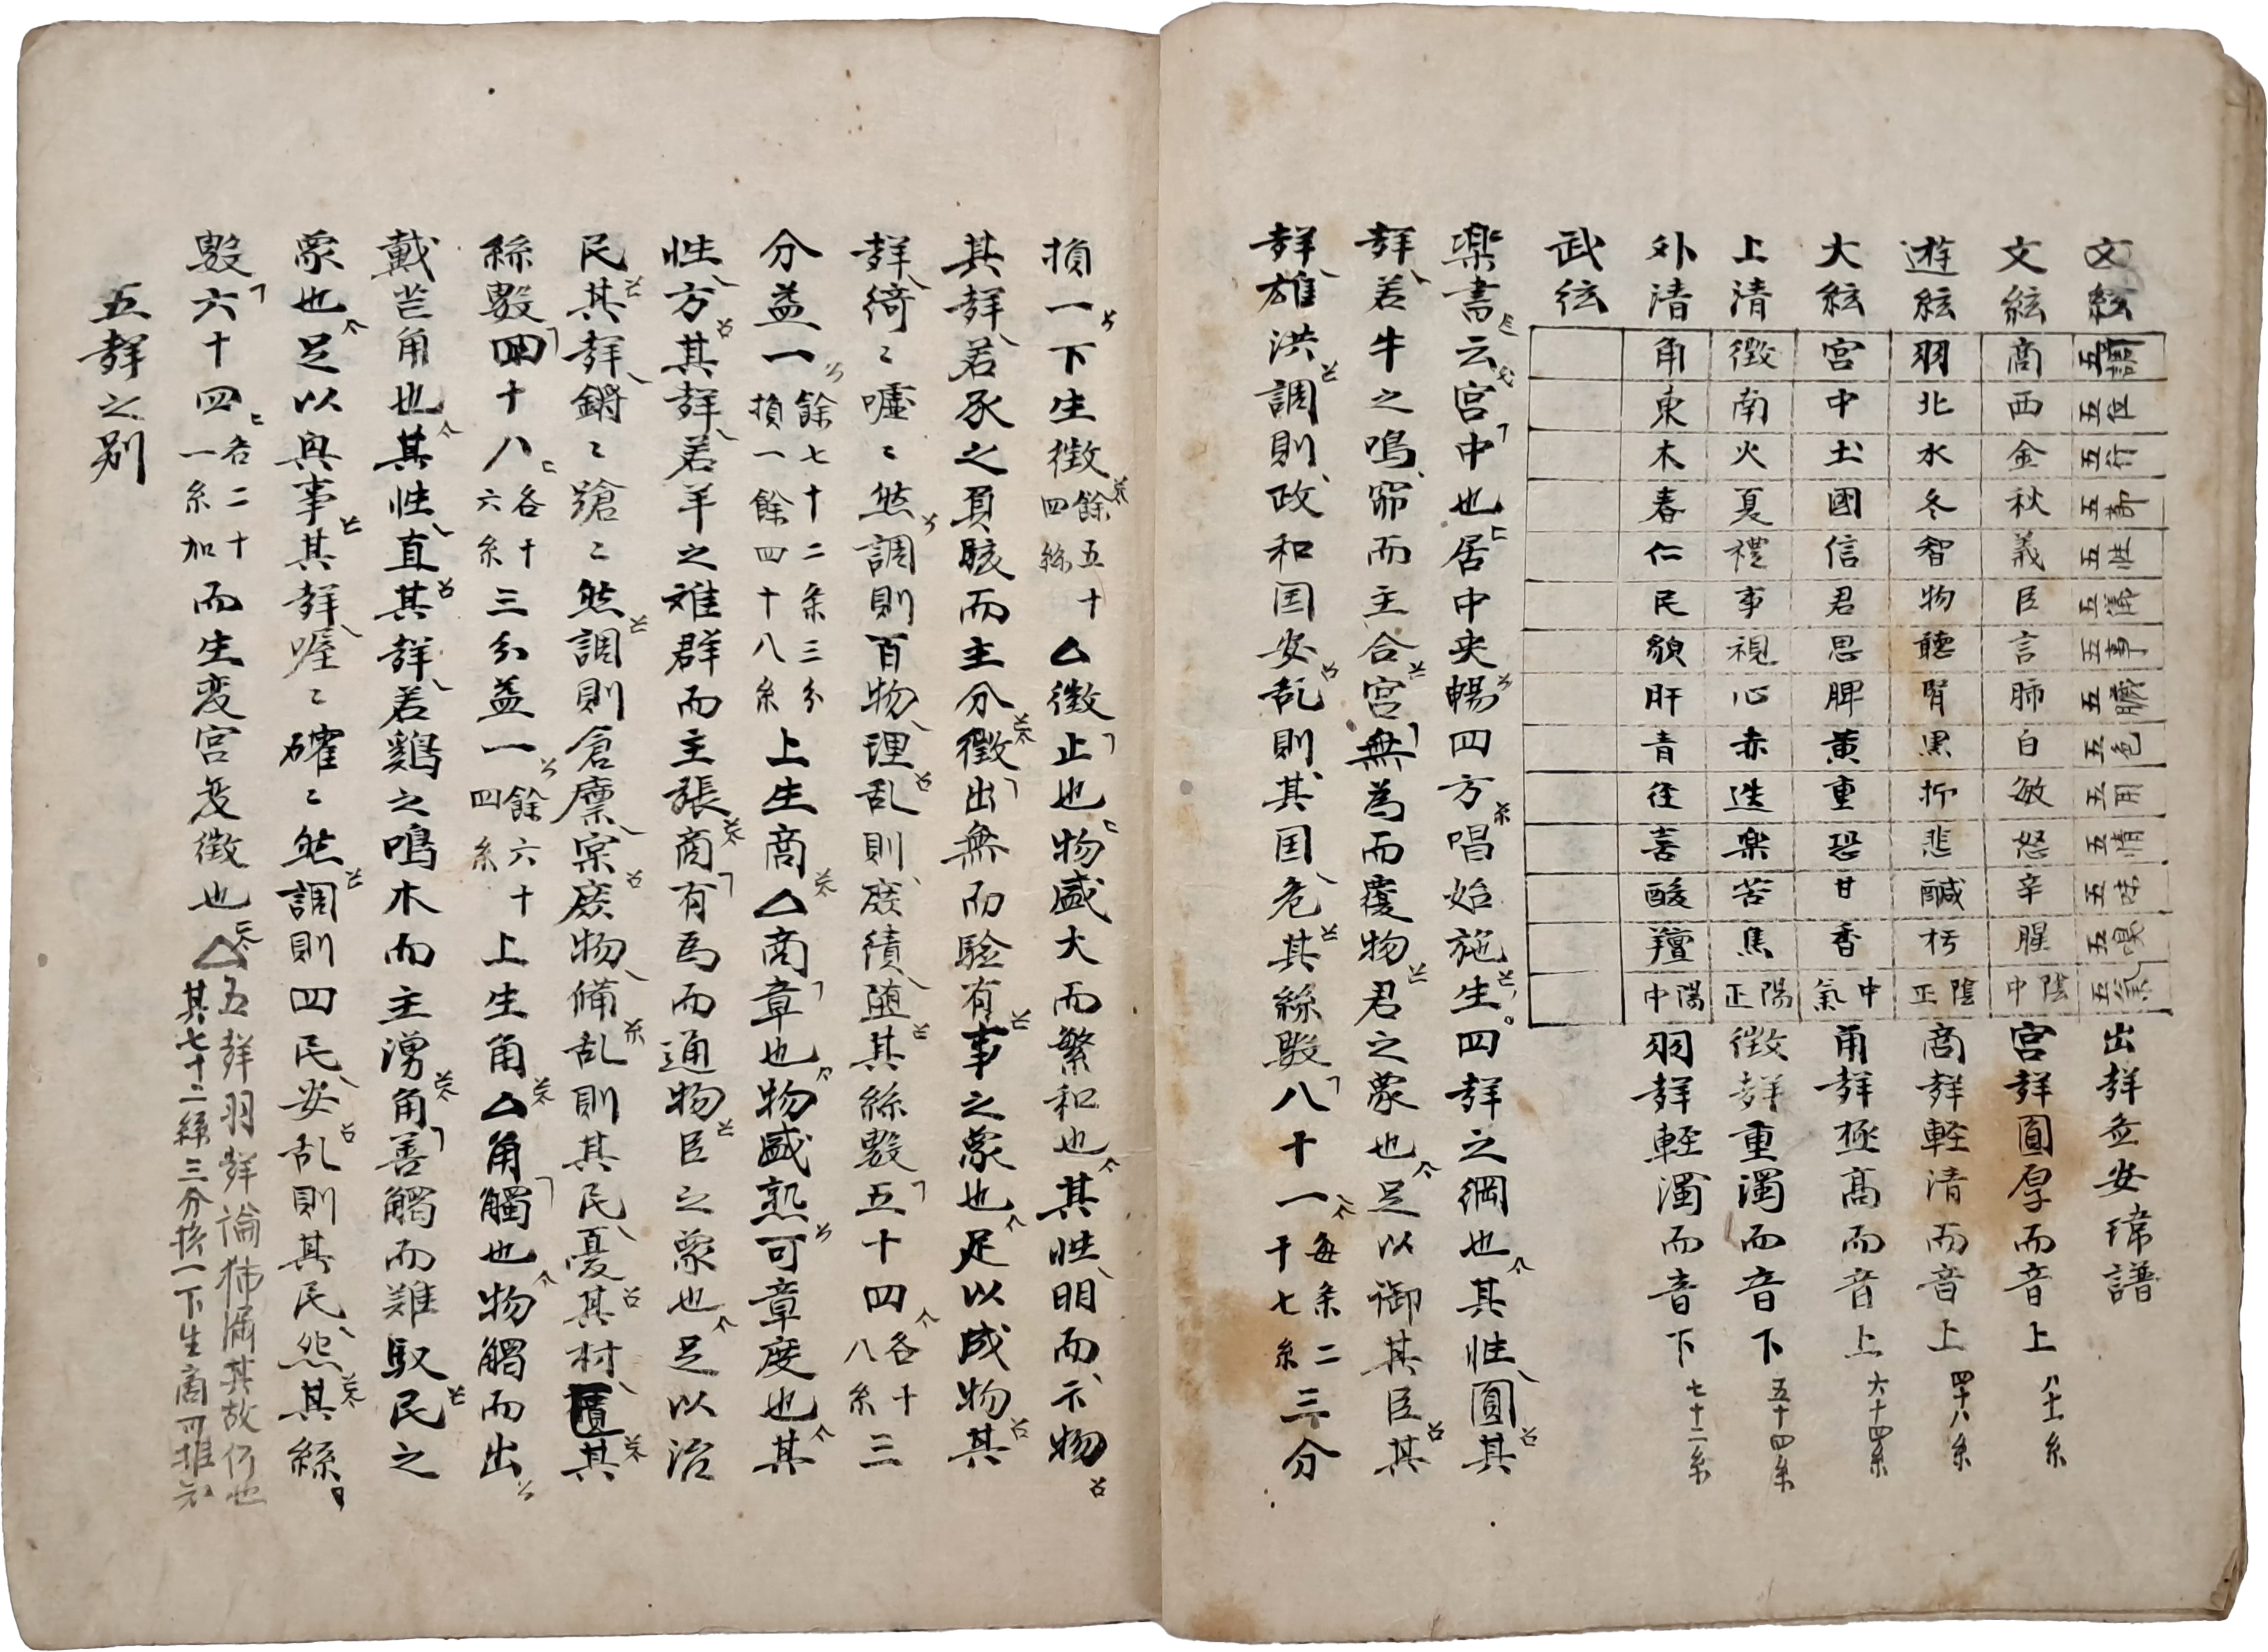 文絃 五調 五位 五行 五節 五性 五儀 五事 五臓 五色 五用 五情 五味 五臭 五氣 出聲並安瑋譜
文絃 商 西 金 秋 義 臣 言 肺 白 敏 怒 辛 腥 中陰 宮聲圓厚而音上 八十一糸
遊絃 羽 北 水 冬 智 物 聴 腎 黒 抑 悲 鹹 朽 正陰 商聲軽清而音上 四十八糸
大絃 宮 中 土 國 信 君 思 脾 黄 重 恐 甘 香 氣中 角聲極髙而音上 六十四糸
上清 徴 南 火 夏 禮 事 視 心 赤 迭 楽 苦 焦 正陽 徴聲重濁而音下 五十四糸
外清 角 東 木 春 仁 民 貌 肝 青 径 喜 酸 羶 中陽 羽聲軽濁而音下 七十二糸
武絃
楽書云宮中也居中央暢四方唱始施生四聲之綱也其性圓其
聲若牛之鳴窌而主合宮無為而覆物君之象也足以御其臣其
聲雄洪調則政和国安乱則其国危其絲数八十一每条二千七糸三分
損一下生徴餘五十四絲△徴止也物盛大而繁和也其性明而示物
其聲若豕之負駭而主分徴出無而驗有事之象也足以成物其
聲綺〻嘘〻然調則百物理乱則庶績堕其絲数五十四各十八糸三
分益一餘七十二条三分損一餘四十八糸上生商△商章也物盛熟可章度也其
性方其聲若羊之離群而主張商有為而通物臣之象也足以治
民其聲鏘〻蹌〻然調則倉廩実庶物備乱則其民憂其材匱其
絲数四十八各十六糸三分益一餘六十四糸上生角△角觸也物觸而出
戴芒角也其性直其聲若鷄之鳴木而主湧角善觸而難馭民之
象也足以興事其聲喔〻確〻然調則四民安乱則其民怨其絲
数六十四各二十一糸加而生変宮変徴也△五聲羽聲論抪漏其故何也
其七十二絲三分損一下生商可推知
五聲之別